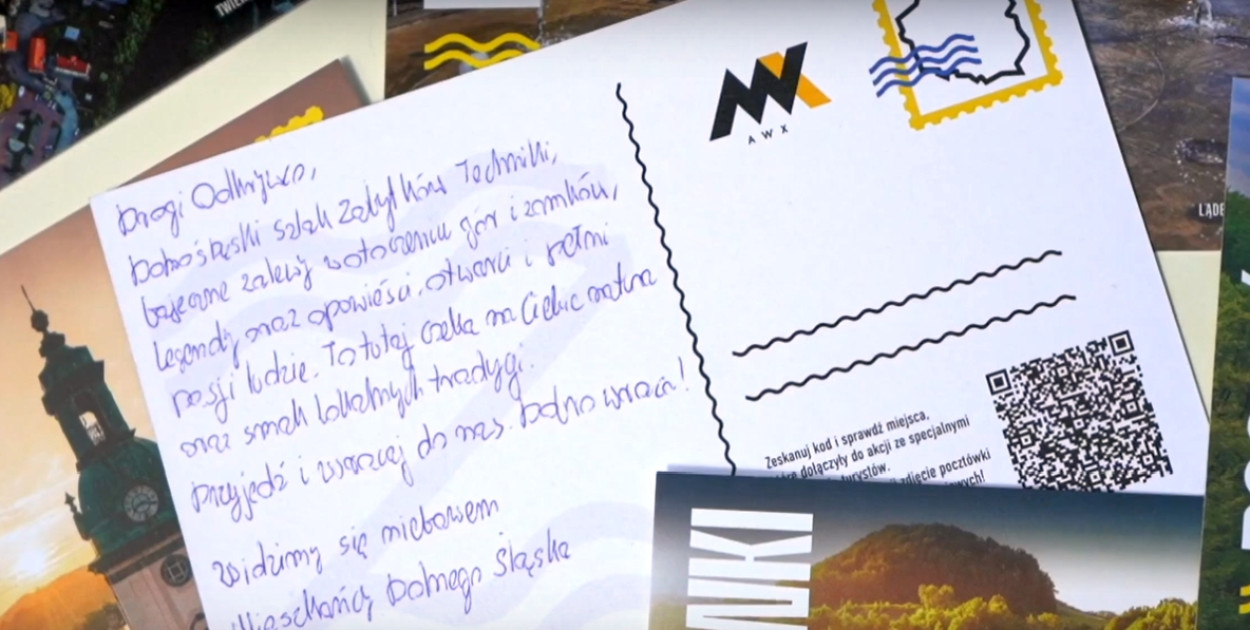 Drogi Odkrywco,
Dolnośląski szlak Zabytków Techniki,
bajeczne zalewy w otoczeniu gór i zamków,
legendy oraz opowieści, otwarci i pełni
pasji ludzie. To tutaj czeka na Ciebie natura
oraz smak lokalnych tradycji.
Przyjedź i wracaj do nas. Pełno wrażeń!
Widzimy się niebawem
Mieszkańcy Dolnego Śląska
AWX
Zeskanuj kod i sprawdź miejsca,
dołączyły do akcji ze specjalnymi
turystów.
zdjęcie pocztówki
WKI
LĄDE